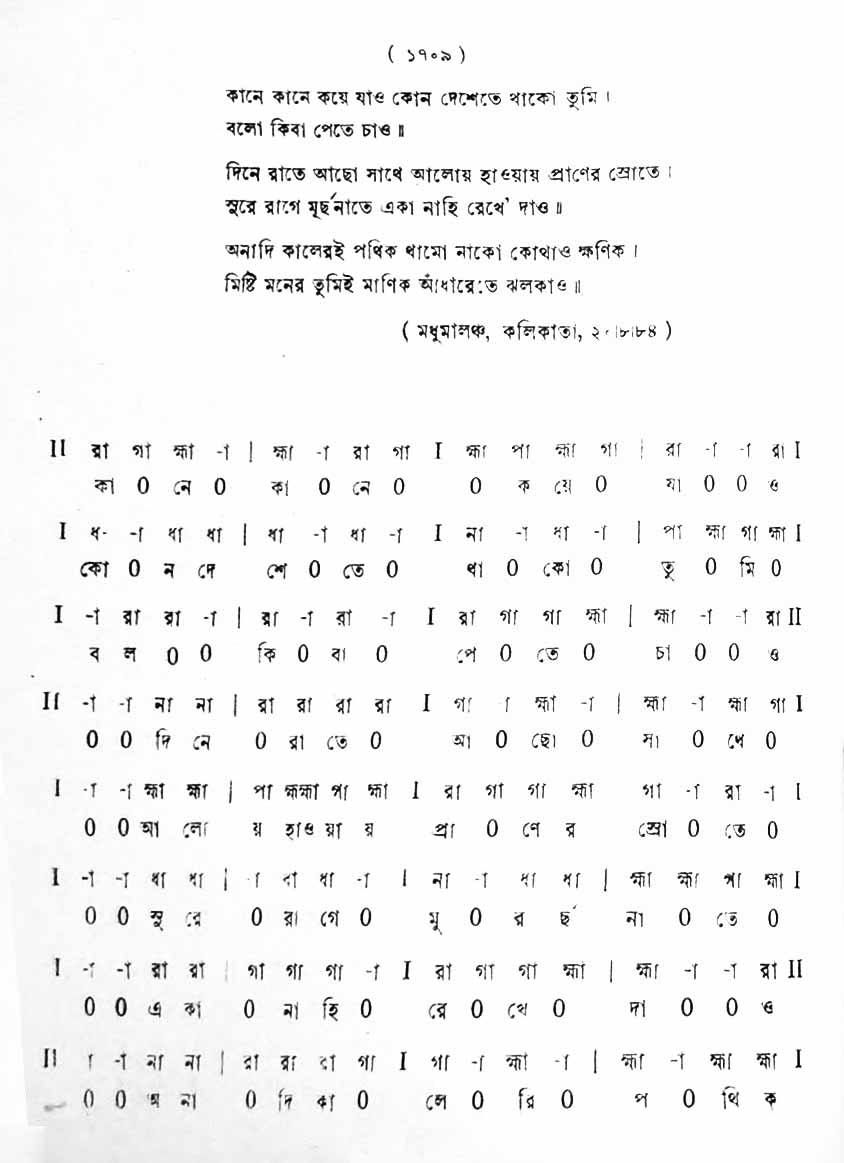 ( ১৭০৯ )
কানে কানে কয়ে যাও কোন দেশেতে থাকো তুমি ।
বলো কিবা পেতে চাও ॥
দিনে রাতে আছো সাথে আলোয় হাওয়ায় প্রাণের স্রোতে ।
সুরে রাগে মূর্ছনাতে একা নাহি রেখে' দাও ॥
অনাদি কালেরই পথিক থামো নাকো কোথাও ক্ষণিক ।
মিষ্টি মনের তুমিই মাণিক আঁধারেতে ঝলকাও ॥
( মধুমালঞ্চ, কলিকাতা, ২০।৮।৮৪ )
II রা গা হ্মা -া | হ্মা -া রা গা I হ্মা পা হ্মা গা | রা -া -া রা I
কা 0 নে 0 কা 0 নে 0 0 ক য়ে 0 যা 0 0 ও
I ধ- -া ধা ধা | ধা -া ধা -া I না -া ধা -া | পা হ্মা গা হ্মা I
কো 0 ন দে শে 0 তে 0 থা 0 কো 0 তু 0 মি 0
I -া রা রা -া | রা -া রা -া I রা গা গা হ্মা | হ্মা -া -া রা II
ব ল 0 0 কি 0 বা 0 পে 0 তে 0 চা 0 0 ও
II -া -া না না | রা রা রা রা I গা া হ্মা -া | হ্মা -া হ্মা গা I
0 0 দি নে 0 রা তে 0 আ 0 ছো 0 সা 0 থে 0
I -া -া হ্মা হ্মা | পা হ্মহ্মা পা হ্মা I রা গা গা হ্মা গা -া রা -া I
0 0 আ লো য় হাও য়া য় প্রা 0 ণে র স্রো 0 তে 0
I -া -া ধা ধা | -া ধা ধা -া I না -া ধা ধা | হ্মা হ্মা পা হ্মা I
0 0 সু রে 0 রা গে 0 মূ 0 র র্ছ না 0 তে 0
I -া -া রা রা | গা গা গা -া I রা গা গা হ্মা | হ্মা -া -া রা II
0 0 এ কা 0 না হি 0 রে 0 খে 0 দা 0 0 ও
II া -া না না | রা রা রা গা I গা -া হ্মা -া | হ্মা -া হ্মা হ্মা I
0 0 অ না 0 দি কা 0 লে 0 রি 0 প 0 থি ক